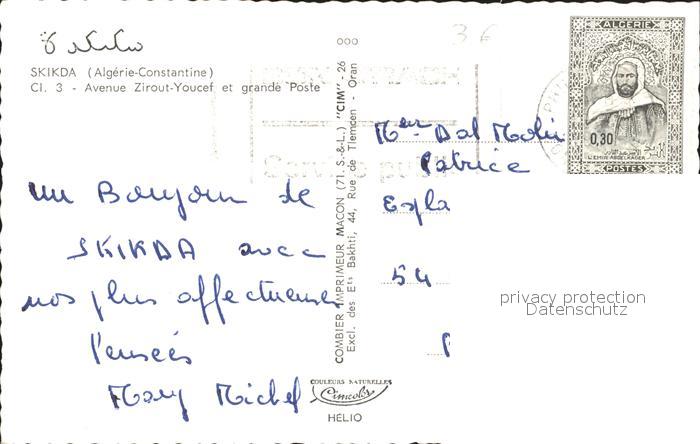 سكيكدة
SKIKDA (Algérie-Constantine)
Cl. 3 - Avenue Zirout-Youcef et grande Poste
un Bonjour de
SKIKDA avec
nos plus affectueuses
Pensées
Mary Michel
COMBIER IMPRIMEUR MACON (71. S.-&-L.) "CIM"
Excl. des Ets Bakhti, 44, Rue de Tlemcen - Oran
26
3 €
ALGERIE
0,30
L'EMIR ABDELKADER
POSTES
Mr Dal Molin
Patrice
Espla
54
privacy protection
Datenschutz
COULEURS NATURELLES
Cimcolor
HÉLIO